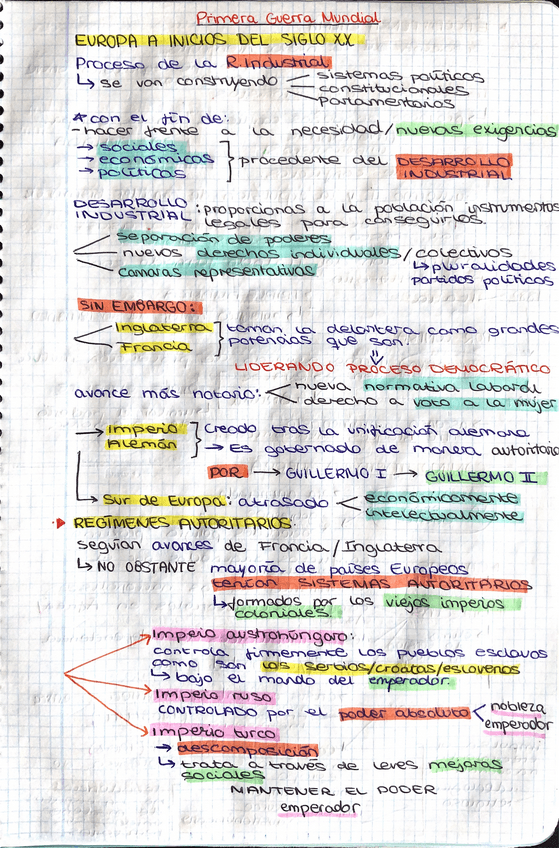 Primera Guerra Mundial
EUROPA A INICIOS DEL SIGLO XX
Proceso de la R.Industrial
↳ se van construyendo sistemas políticos
constitucionales
parlamentarios
* con el fin de:
- hacer frente a la necesidad/nuevas exigencias
→ sociales
→ económicas } procedente del DESARROLLO INDUSTRIAL
→ políticas
DESARROLLO INDUSTRIAL : proporcionas a la población instrumentos
legales para conseguirlos.
separación de poderes
nuevos derechos individuales/colectivos
cámaras representativas ↳ pluralidades
partidos políticos
SIN EMBARGO:
Inglaterra ] toman la delantera como grandes
Francia ] potencias que son.
⇓
LIDERANDO PROCESO DEMOCRÁTICO
avance más notorio: nueva normativa laboral
derecho a voto a la mujer
→ Imperio ] Creado tras la unificación alemana
Alemán ] → Es gobernado de manera autoritaria
POR → GUILLERMO I → GUILLERMO II
→ Sur de Europa: atrasado económicamente
intelectualmente
▸ REGÍMENES AUTORITARIOS
seguían avances de Francia/Inglaterra
↳ NO OBSTANTE mayoría de países Europeos
tenían SISTEMAS AUTORITARIOS
↳ formados por los viejos imperios
coloniales.
Imperio austrohúngaro:
controla firmemente los pueblos esclavos
como son los serbios/croatas/eslovenos
↳ bajo el mando del emperador.
Imperio ruso
CONTROLADO por el poder absoluto nobleza
emperador
Imperio turco
→ descomposición
↳ trata a través de leves mejoras
sociales
MANTENER EL PODER
emperador